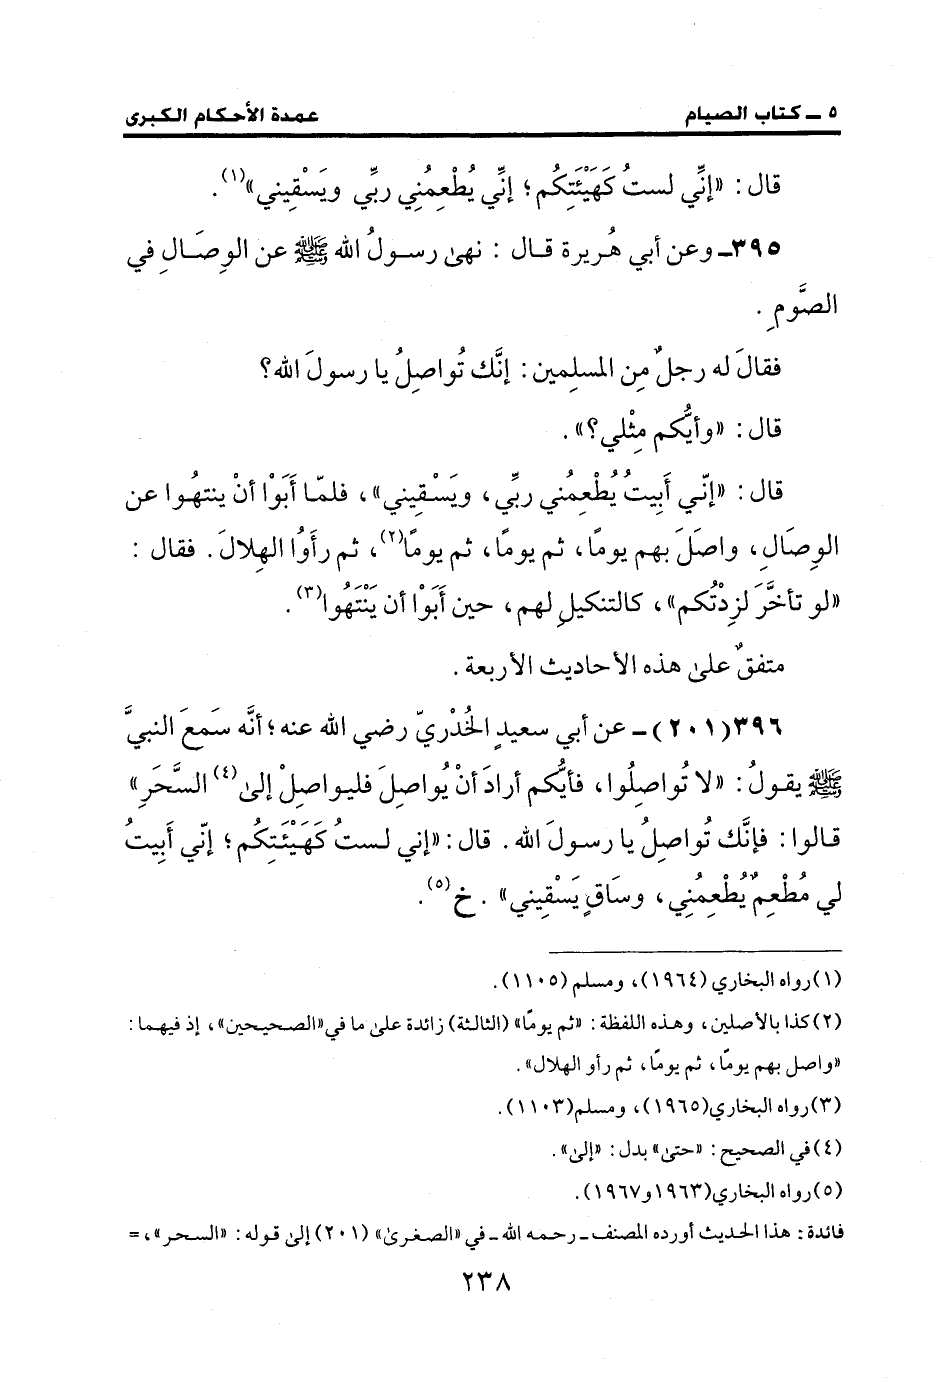 ٥ ـ كتاب الصيام عمدة الأحكام الكبرى
قال : «إنِّي لستُ كَهَيْئَتِكُم؛ إنِّي يُطْعِمُنِي ربِّي ويَسْقِيني»(١).
٣٩٥ـ وعن أبي هُريرة قال : نهىٰ رسولُ الله ﷺ عن الوِصَالِ في
الصَّومِ .
فقالَ له رجلٌ مِن المسلمِين: إنَّك تُواصِلُ يا رسولَ الله؟
قال : «وأيُّكم مِثْلي؟» .
قال : «إنّي أَبيتُ يُطْعِمُني ربِّي، ويَسْقِيني»، فلمّا أَبَوْا أنْ ينتهُوا عن
الوِصَالِ، واصَلَ بهم يومًا، ثم يومًا، ثم يومًا(٢)، ثم رأَوُا الهلالَ. فقال :
«لو تأخَّرَ لزِدْتُكم»، كالتنكيلِ لهم، حين أَبَوْا أن يَنْتَهُوا(٣).
متفقٌ علىٰ هذه الأحاديث الأربعة .
٣٩٦(٢٠١)ـ عن أبي سعيدٍ الخُدْريّ رضي الله عنه؛ أنَّه سَمعَ النبيَّ
ﷺ يقولُ: «لا تُواصِلُوا، فأيُّكم أرادَ أنْ يُواصِلَ فليواصِلْ إلىٰ(٤) السَّحَرِ»
قالوا: فإنَّك تُواصِلُ يا رسولَ الله. قال:«إني لستُ كَهَيْئَتِكُم؛ إنّي أَبِيتُ
لي مُطْعِمٌ يُطْعِمُنِي، وسَاقٍ يَسْقِيني» . خ(٥).
(١) رواه البخاري (١٩٦٤)، ومسلم (١١٠٥).
(٢) كذا بالأصلين، وهذه اللفظة: «ثم يومًا» (الثالثة) زائدة علىٰ ما في «الصحيحين»، إذ فيهما:
«واصل بهم يومًا، ثم يومًا، ثم رأو الهلال».
(٣) رواه البخاري(١٩٦٥)، ومسلم(١١٠٣).
(٤) في الصحيح: «حتىٰ» بدل: «إلىٰ».
(٥) رواه البخاري(١٩٦٣و١٩٦٧).
فائدة: هذا الحديث أورده المصنف ـ رحمه الله ـ في «الصغرىٰ» (٢٠١) إلىٰ قوله: «السحر»، =
٢٣٨